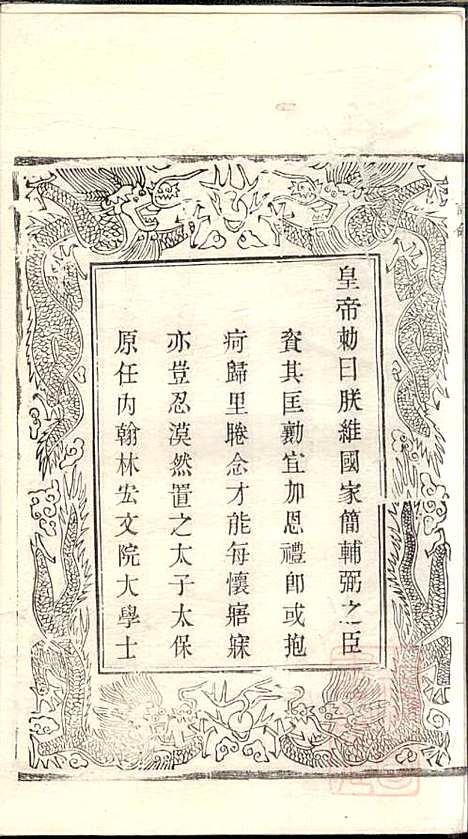 皇帝勅曰朕維國家簡輔弼之臣
資其匡勷宜加恩禮卽或抱
疴歸里睠念才能每懷寤寐
亦豈忍漠然置之太子太保
原任内翰林宏文院大學士